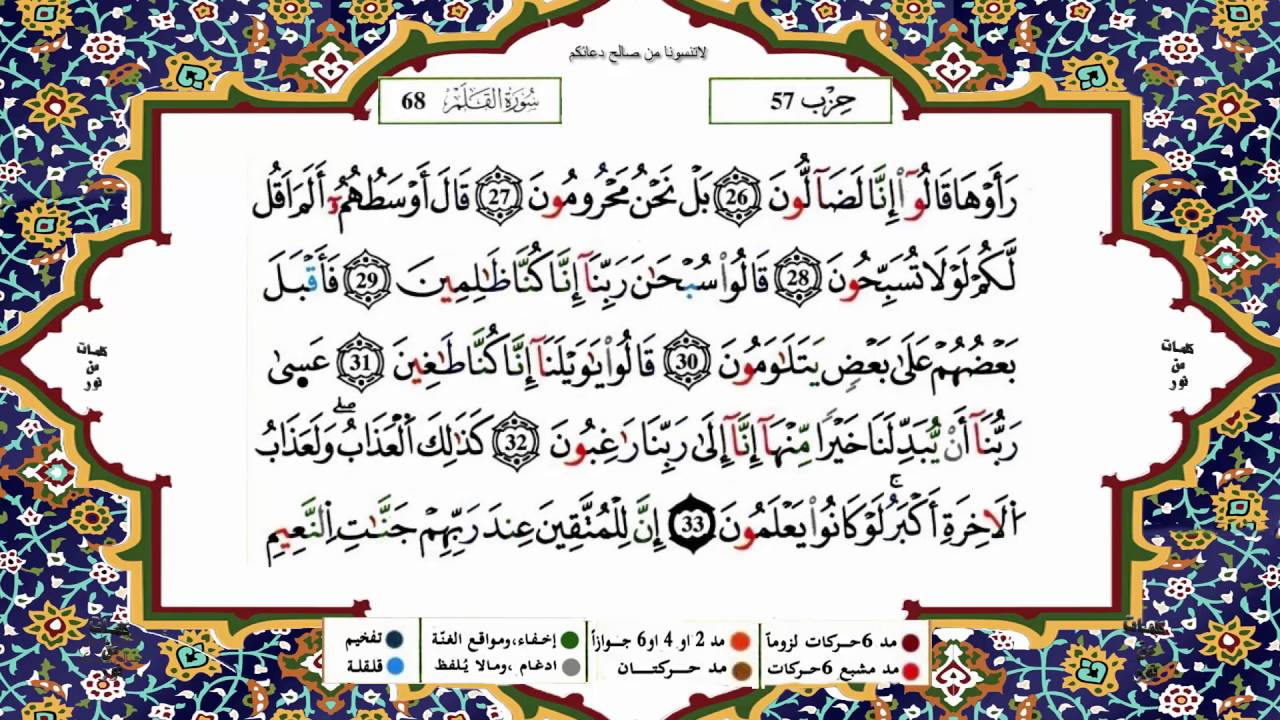 لاتنسونا من صالح دعائكم
حِزْب 57
سُورَةُ القَلَمْ 68
رَأَوْهَا قَالُوٓاْ إِنَّا لَضَآلُّونَ 26 بَلْ نَحْنُ مَحْرُومُونَ 27 قَالَ أَوْسَطُهُمُۥٓ أَلَمَ اَقُل
لَّكُمْ لَوْلَا تُسَبِّحُونَ 28 قَالُواْ سُبْحَٰنَ رَبِّنَآ إِنَّا كُنَّا ظَٰلِمِينَ 29 فَأَقْبَلَ
بَعْضُهُمْ عَلَىٰ بَعْضٖ يَتَلَٰوَمُونَ 30 قَالُواْ يَٰوَيْلَنَآ إِنَّا كُنَّا طَٰغِينَ 31 عَسِىٰ
رَبُّنَآ أَنْ يُّبَدِّلَنَا خَيْرٗا مِّنْهَآ إِنَّآ إِلَىٰ رَبِّنَا رَٰغِبُونَ 32 كَذَٰلِكَ اَ۬لْعَذَابُۖ وَلَعَذَابُ
اُ۬لَاخِرَةِ أَكْبَرُۚ لَوْ كَانُواْ يَعْلَمُونَ 33 إِنَّ لِلْمُتَّقِينَ عِندَ رَبِّهِمْ جَنَّٰتِ اِ۬لنَّعِيمِ
كلمات
من
نور
كلمات
من
نور
كلمات
من
نور
كلمات
من
نور
مد 6 حركات لزوماً
مد 2 او 4 او 6 جوازاً
إخفاء، ومواقع الغنّة
تفخيم
مد مشبع 6 حركات
مد حركتان
ادغام، ومالا يُلفظ
قلقلة